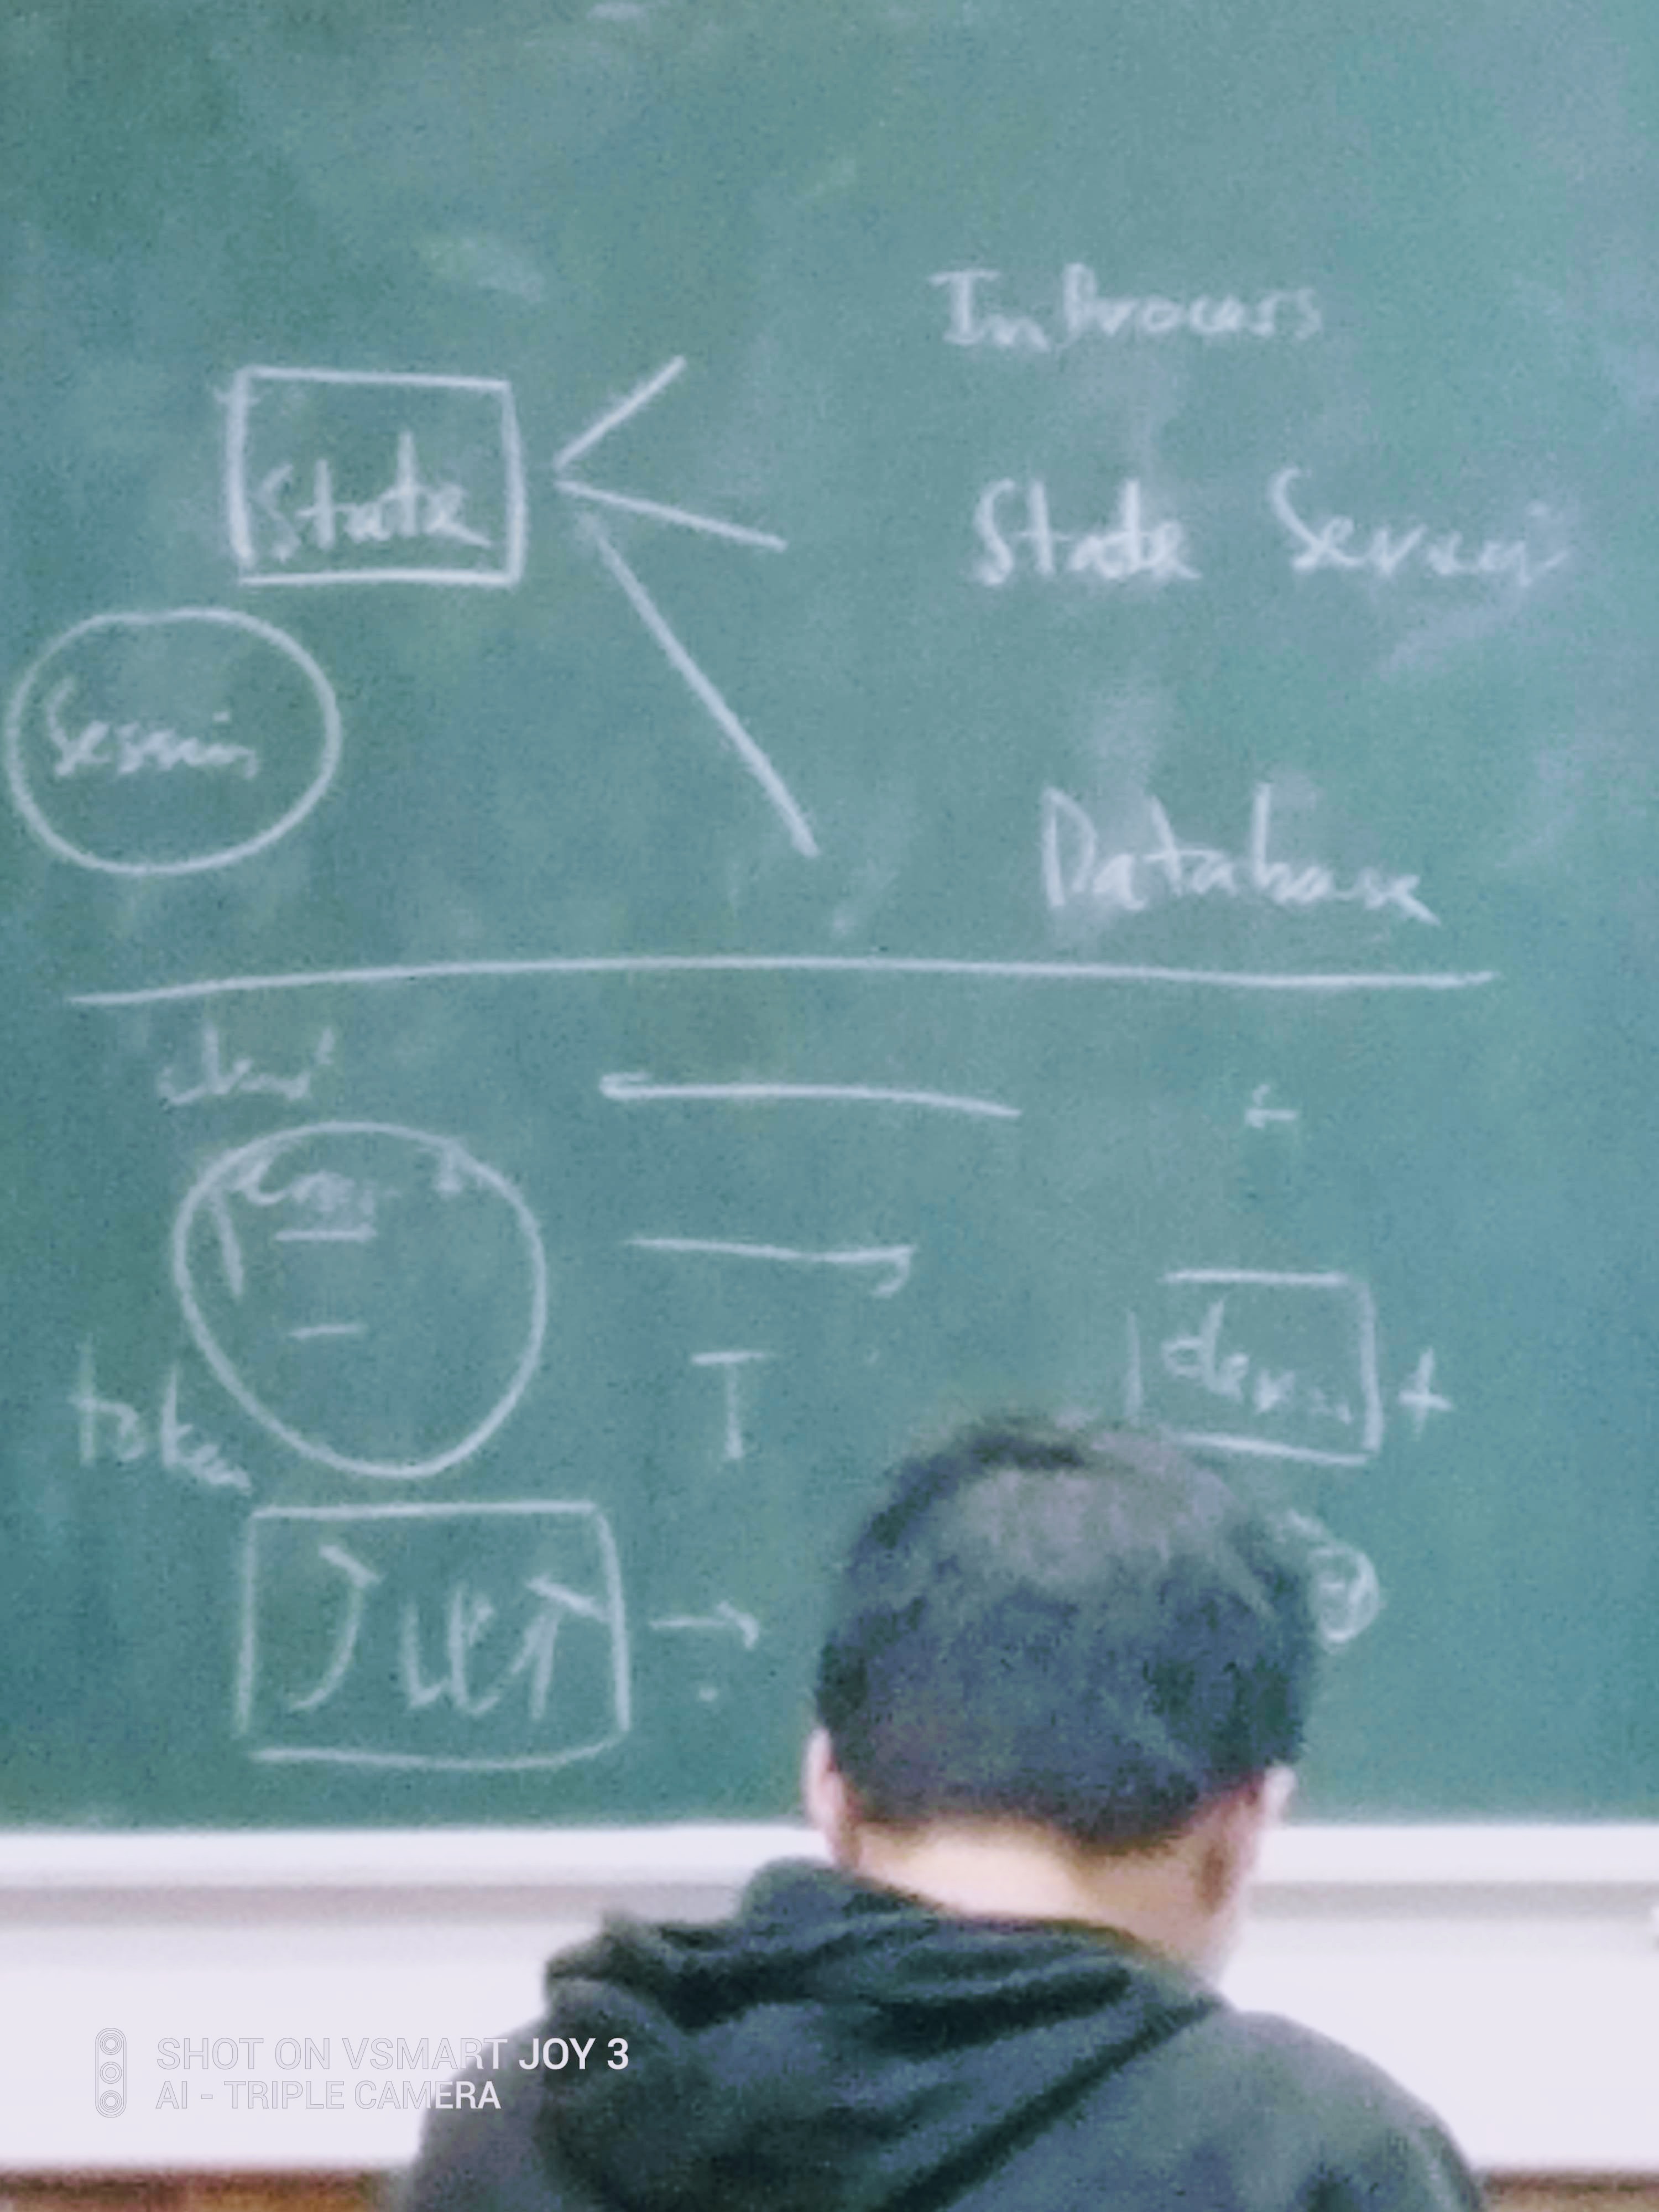 InProcess
State
State Server
Session
Database
client
token
T
+
JWT
SHOT ON VSMART JOY 3
AI - TRIPLE CAMERA